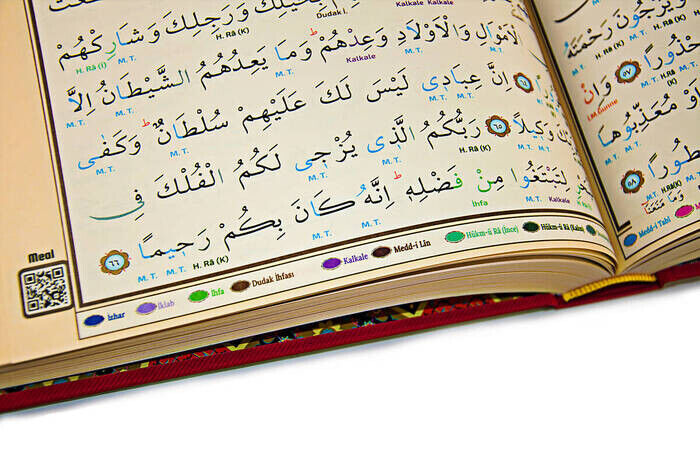 وَرَجِلِكَ وَشَارِكْهُمْ
Dudak İ.
H. Râ (K)
Kalkale Kalkale
H. Râ (i) M. T.
الْاَمْوَالِ وَالْاَوْلَادِ وَعِدْهُمْ ط وَمَا يَعِدُهُمُ الشَّيْطَانُ اِلَّا
M. T. M. T. Kalkale M. T. M. T. M. T.
٦٤ اِنَّ عِبَادٖى لَيْسَ لَكَ عَلَيْهِمْ سُلْطَانٌ ط وَكَفٰى
M. T. M. T. M. T. M. T.
وَكٖيلًا ٦٥ رَبُّكُمُ الَّذٖى يُزْجٖى لَكُمُ الْفُلْكَ فِى
M. T. M. T. H. Râ (K) M. T. M. T.
لِتَبْتَغُوا مِنْ فَضْلِهٖ ط اِنَّهُ كَانَ بِكُمْ رَحٖيمًا ٦٦
Kalkale M. T. İhfa M. T. M. T. H. Râ (K) M. T. M. T.
Meal
İzhar İklab İhfa Dudak İhfası Kalkale Medd-i Lin Hükm-ü Râ (İnce) Hükm-ü Râ (Kalın)
رَحْمَتَهُ
H. Râ (K)
٥٧ وَاِنْ
İ.M.Gunne
اَوْ مُعَذِّبُوهَا
M. T. M. T.
٥٨
M. T. H.Râ(K) M. T.
وَمَا مَنَعَنَا
Medd-i Tabî